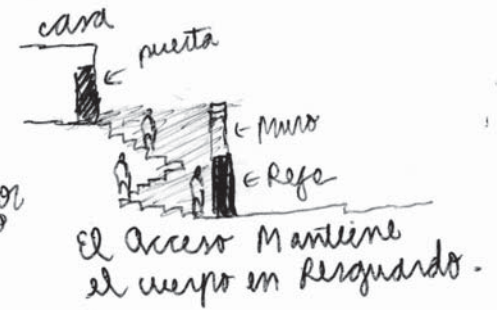 casa
puerta
muro
Reja
El acceso Mantiene
el cuerpo en Resguardo.